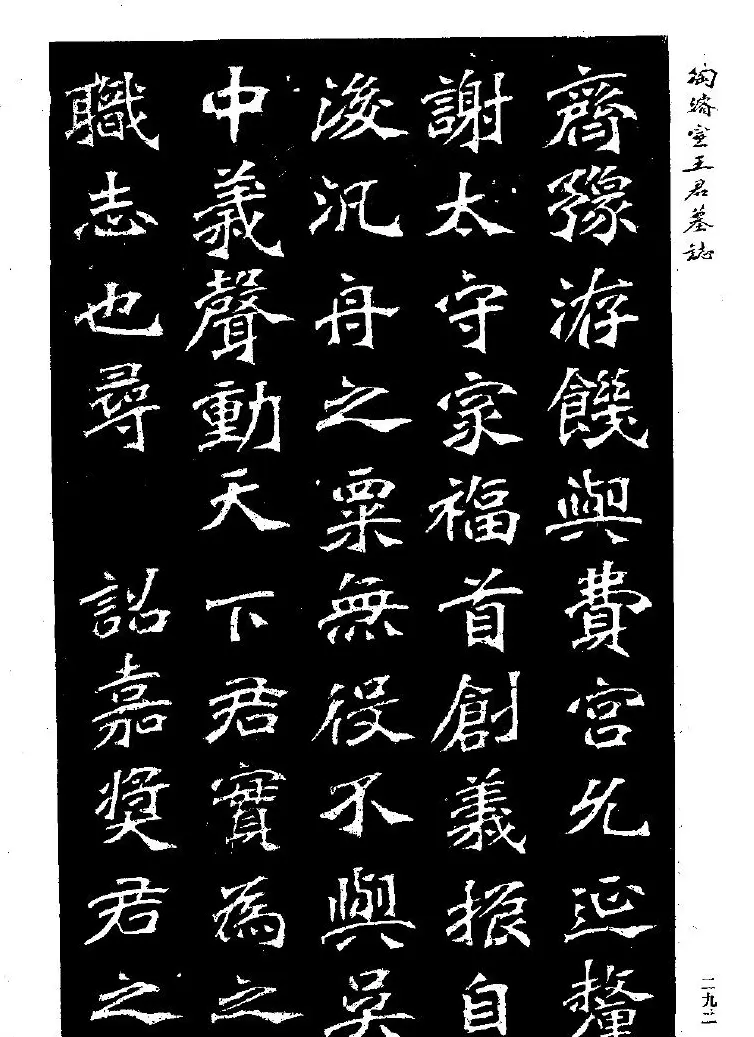 陶濬宣王君墓誌
齊豫洊饑與費宮允延釐
謝太守家福首創義振自
浚汎舟之粟無役不與吳
中義聲動天下君實為之
職志也尋 詔嘉獎君之
二九二